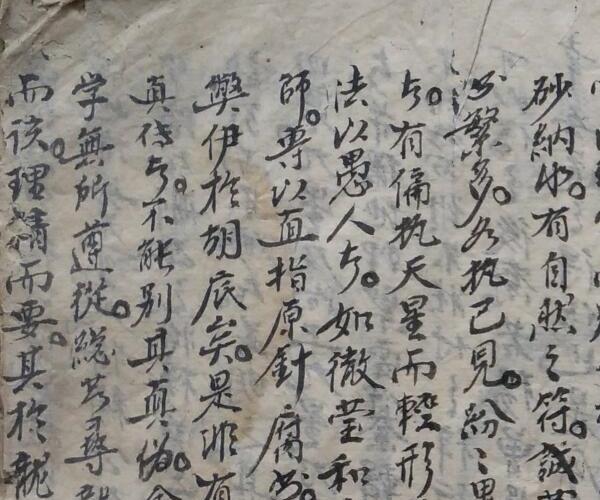 砂納水。有自然之符。誠
繁多。各执己見。紛〻
有偏执天星而輕形
法以愚人者。如徹瑩和
師。專以直指原針腐
弊伊於胡底矣。是非有
真传者。不能别其真偽。
学無所遵從。总其尋
而该。理精而要。其於龍